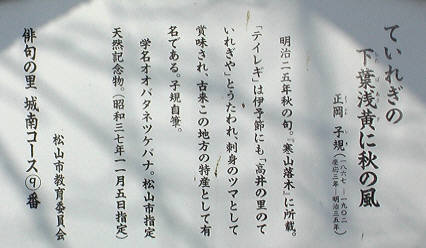 ていれぎの
下葉浅黄に秋の風
正岡 子規(一八六七―一九〇二 慶応三年―明治三五年)
明治二五年秋の句。『寒山落木』に所載。
「テイレギ」は伊予節にも「高井の里のて
いれぎや」とうたわれ、刺身のツマとして
賞味され、古来この地方の特産として有
名である。子規自筆。
学名オオバタネツケバナ。松山市指定
天然記念物。(昭和三七年一一月五日指定)
松山市教育委員会
俳句の里 城南コース⑨番